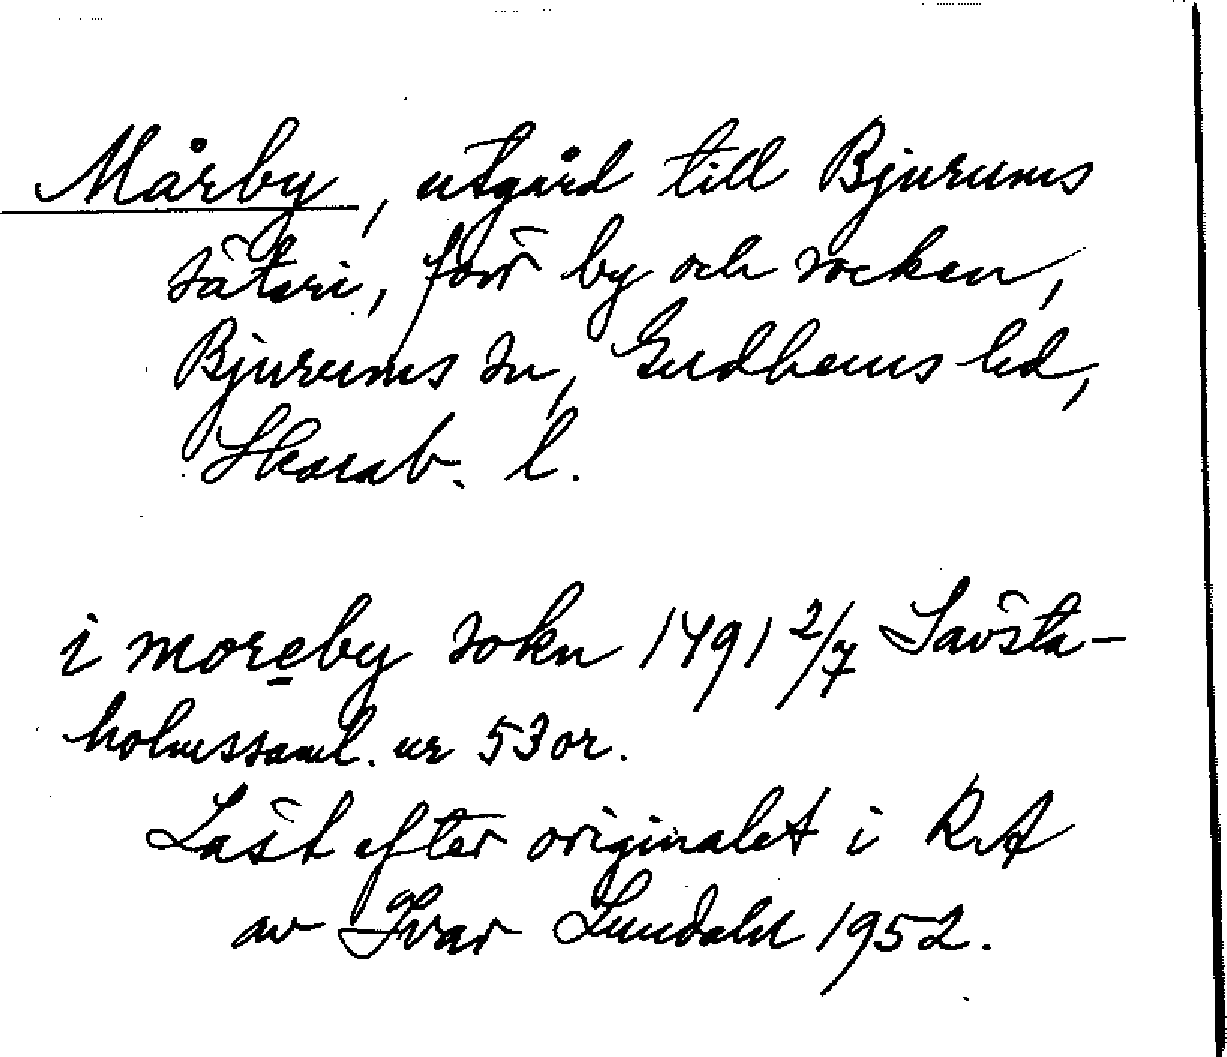 Mårby, utgård till Bjurums
säteri, förr by och socken,
Bjurums sn, Gudhems hd,
Skarab. l.
i moreby sokn 1491 2/7 Sävsta-
holmssaml. nr 53 or.
Läst efter originalet i RA
av Ivar Lundahl 1952.